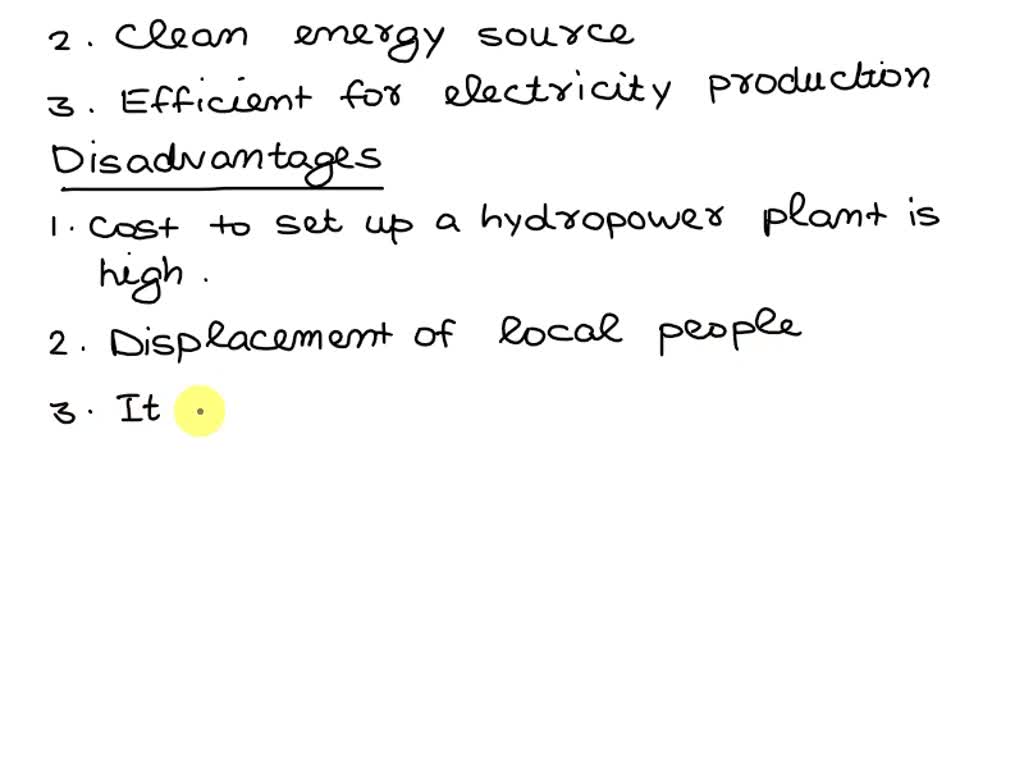 2. Clean energy source
3. Efficient for electricity production
Disadvantages
1. Cost to set up a hydropower plant is
high.
2. Displacement of local people
3. It